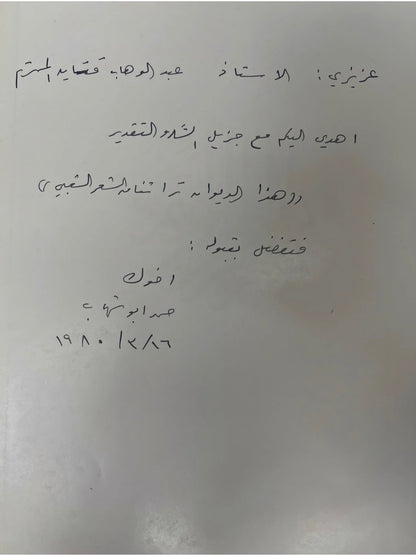 عزيزي: الاستاذ عبد الوهاب قتايه المحترم
اهدي اليكم مع جزيل الشكر والتقدير
((هذا الديوان تراثنا من الشعر الشعبي))
فتفضل بقبوله :
اخوك
حمد ابو شهاب
١٩٨٠/٣/١٦